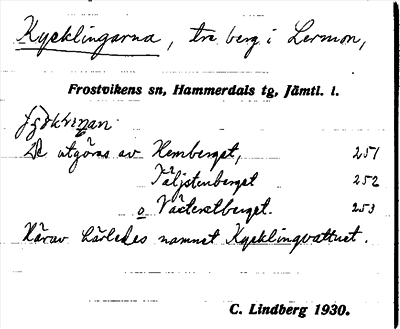 Kycklingarna, tre berg i Lermon,
Frostvikens sn, Hammerdals tg, Jämtl. l.
De utgöras av Hemberget, 251
Täljstenberget 252
o Växteratberget. 253
Härav härledes namnet Kycklingvattnet.
C. Lindberg 1930.